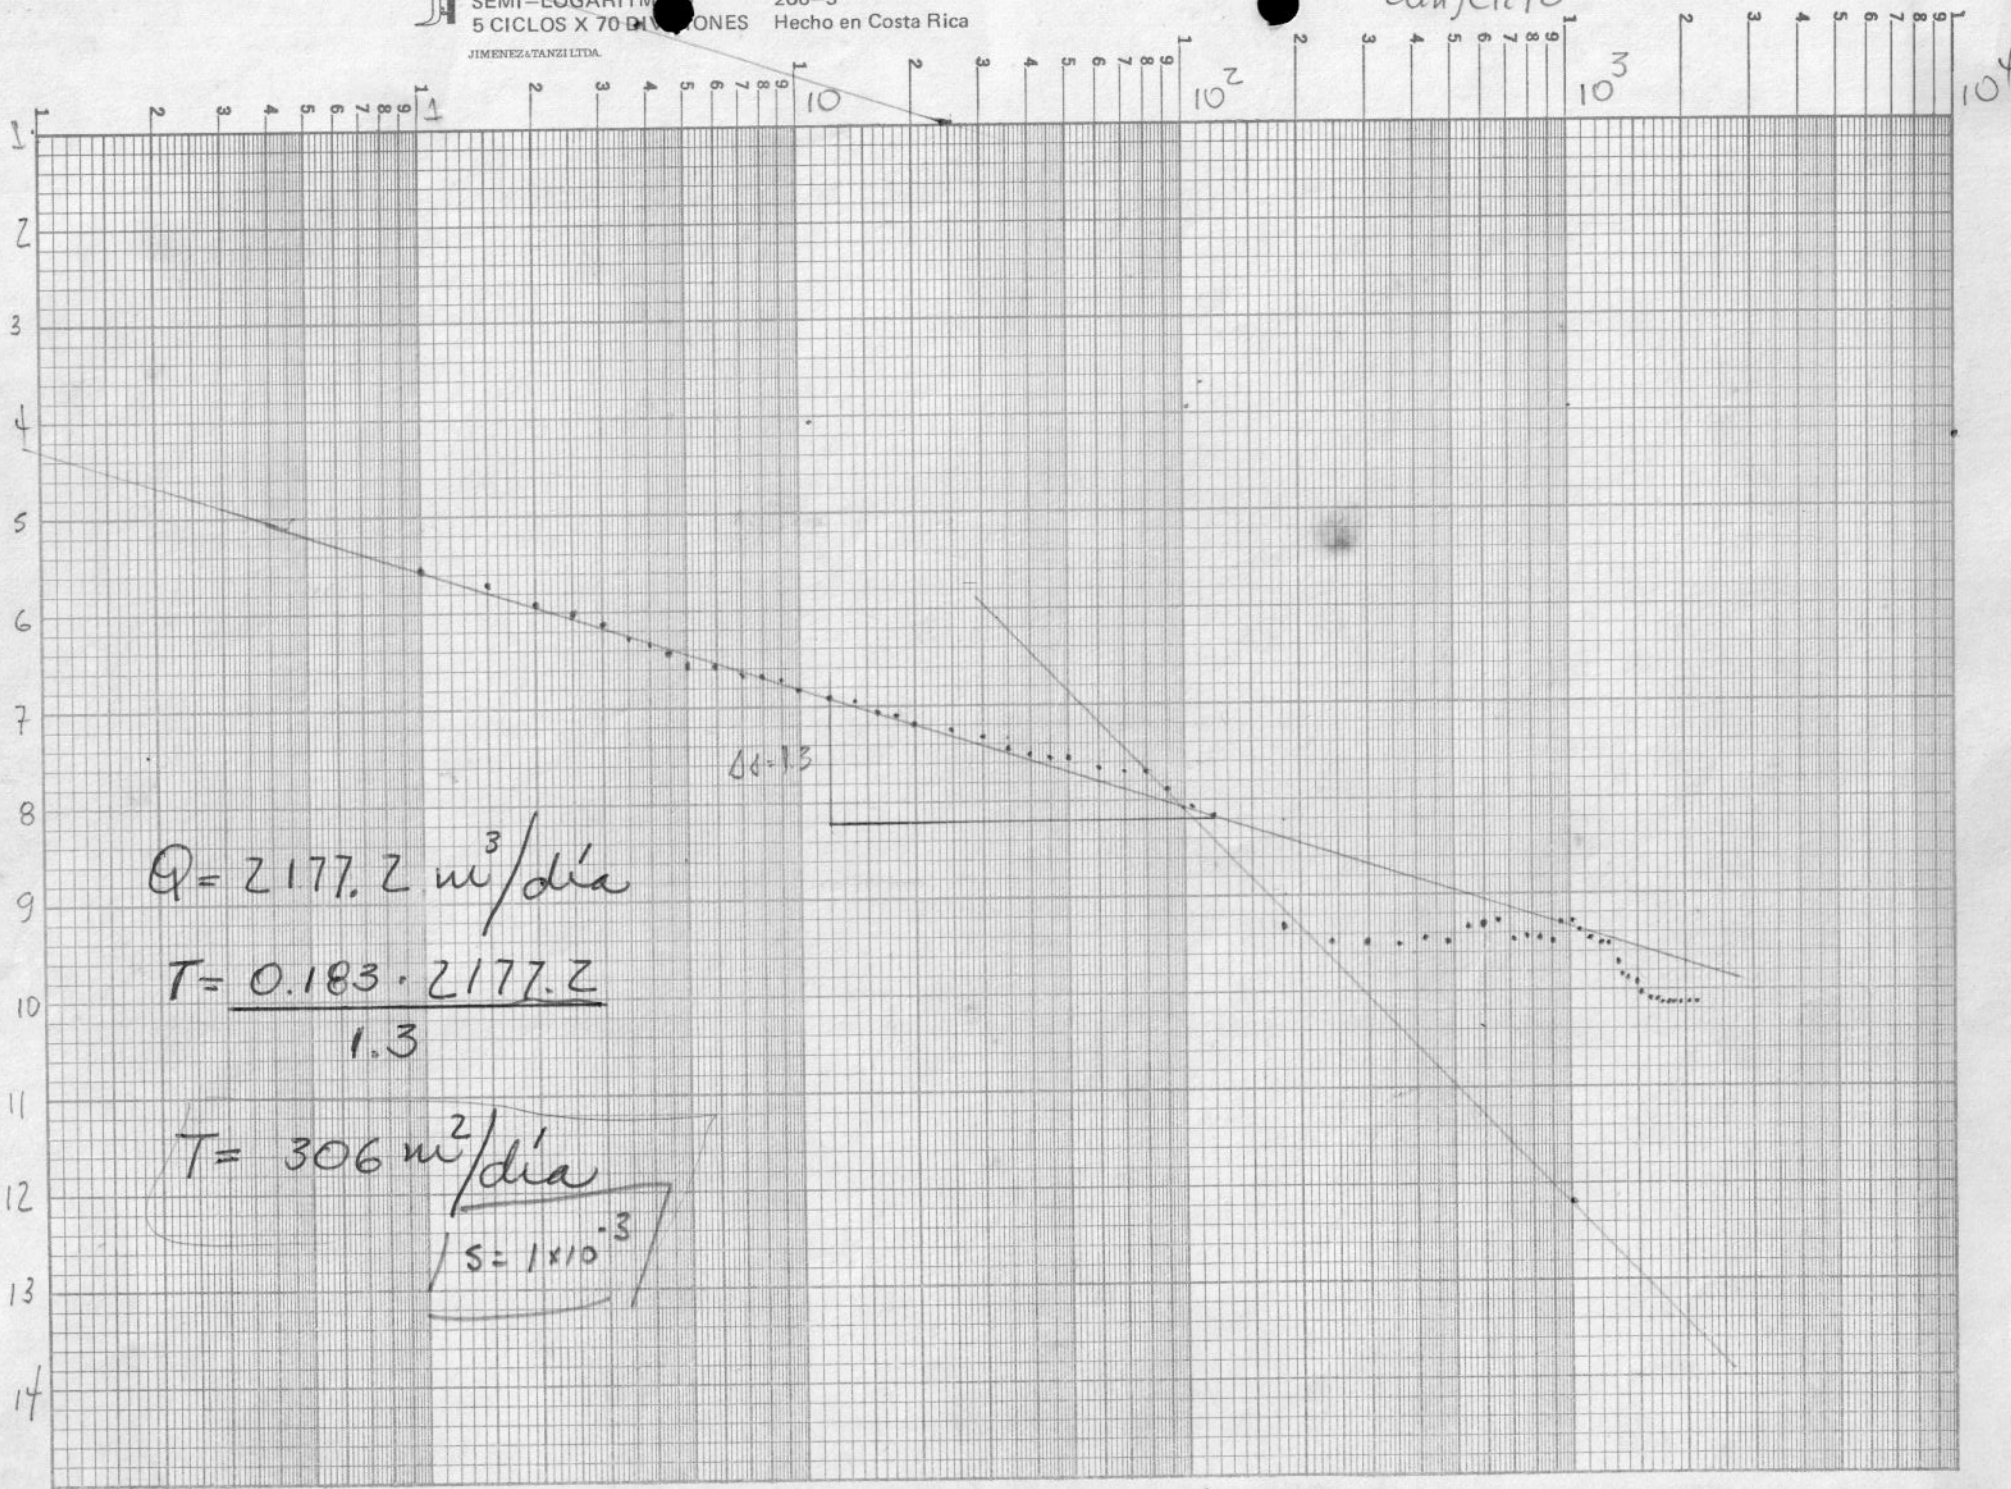 SEMI-LOGARITM
5 CICLOS X 70 DIV ONES Hecho en Costa Rica
JIMENEZ & TANZI LTDA.
1 2 3 4 5 6 7 8 9 1 2 3 4 5 6 7 8 9 1 2 3 4 5 6 7 8 9 1 2 3 4 5 6 7 8 9 1 2 3 4 5 6 7 8 9 1
1 10 10² 10³ 10⁴
1
2
3
4
5
6
7
8
9
10
11
12
13
14
Δs=1.3
Q= 2177.2 m³/día
T= 0.183 · 2177.2
1.3
T= 306 m²/día
S= 1x10⁻³